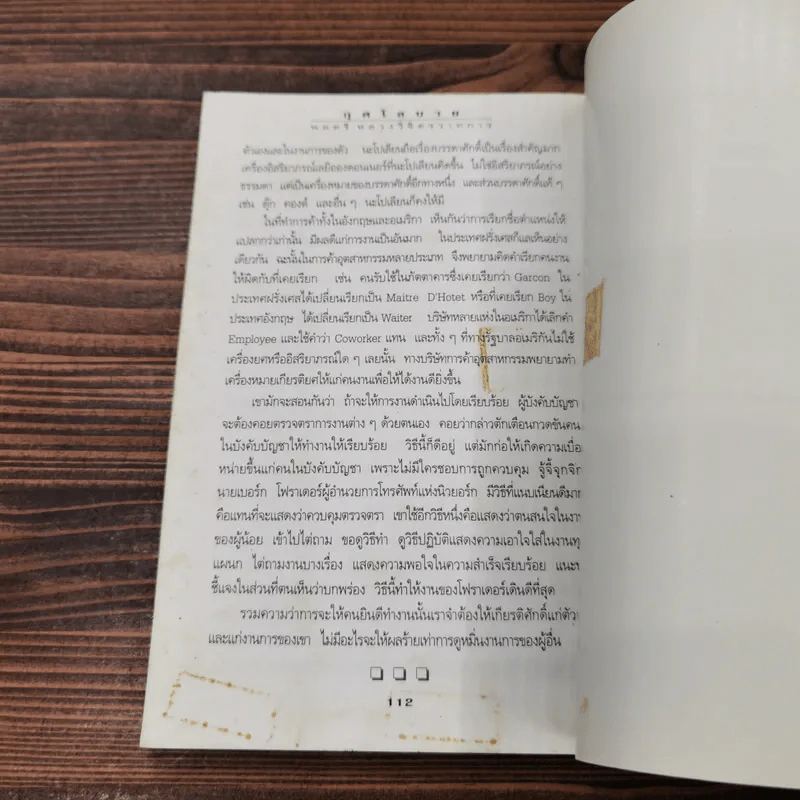 กุศโลบาย
พลตรี หลวงวิจิตรวาทการ
ตัวเองและในงานการของตัว นะโปเลียนถือเรื่องบรรดาศักดิ์เป็นเรื่องสำคัญมาก
เครื่องอิสริยาภรณ์ลยิอองดอนเนอร์ที่นะโปเลียนคิดขึ้น ไม่ใช่อิสริยาภรณ์อย่าง
ธรรมดา แต่เป็นเครื่องหมายของบรรดาศักดิ์อีกทางหนึ่ง และส่วนบรรดาศักดิ์แท้ ๆ
เช่น ดุ๊ก คองต์ และอื่น ๆ นะโปเลียนก็คงให้มี
ในที่ทำการค้าทั้งในอังกฤษและอเมริกา เห็นกันว่าการเรียกชื่อตำแหน่งให้
แปลกกว่าเก่านั้น มีผลดีแก่การงานเป็นอันมาก ในประเทศฝรั่งเศสก็แลเห็นอย่าง
เดียวกัน ฉะนั้นในการค้าอุตสาหกรรมหลายประเภท จึงพยายามคิดคำเรียกคนงาน
ให้ผิดกับที่เคยเรียก เช่น คนรับใช้ในภัตตาคารซึ่งเคยเรียกว่า Garcon ใน
ประเทศฝรั่งเศสได้เปลี่ยนเรียกเป็น Maitre D'Hotet หรือที่เคยเรียก Boy ใน
ประเทศอังกฤษ ได้เปลี่ยนเรียกเป็น Waiter บริษัทหลายแห่งในอเมริกาได้เลิกคำ
Employee และใช้คำว่า Coworker แทน และทั้ง ๆ ที่ทางรัฐบาลอเมริกันไม่ใช้
เครื่องยศหรืออิสริยาภรณ์ใด ๆ เลยนั้น ทางบริษัทการค้าอุตสาหกรรมพยายามทำ
เครื่องหมายเกียรติยศให้แก่คนงานเพื่อให้ได้งานดียิ่งขึ้น
เขามักจะสอนกันว่า ถ้าจะให้การงานดำเนินไปโดยเรียบร้อย ผู้บังคับบัญชา
จะต้องคอยตรวจตราการงานต่าง ๆ ด้วยตนเอง คอยว่ากล่าวตักเตือนกวดขันคน
ในบังคับบัญชาให้ทำงานให้เรียบร้อย วิธีนี้ก็ดีอยู่ แต่มักก่อให้เกิดความเบื่อ
หน่ายขึ้นแก่คนในบังคับบัญชา เพราะไม่มีใครชอบการถูกควบคุม จู้จี้จุกจิก
นายเบอร์ก โฟราเดอร์ผู้อำนวยการโทรศัพท์แห่งนิวยอร์ก มีวิธีที่แนบเนียนดีมาก
คือแทนที่จะแสดงว่าควบคุมตรวจตรา เขาใช้อีกวิธีหนึ่งคือแสดงว่าตนสนใจในงาน
ของผู้น้อย เข้าไปไต่ถาม ขอดูวิธีทำ ดูวิธีปฏิบัติแสดงความเอาใจใส่ในงานทุ
แผนก ไต่ถามงานบางเรื่อง แสดงความพอใจในความสำเร็จเรียบร้อย แนะน
ชี้แจงในส่วนที่ตนเห็นว่าบกพร่อง วิธีนี้ทำให้งานของโฟราเดอร์เดินดีที่สุด
รวมความว่าการจะให้คนยินดีทำงานนั้นเราจำต้องให้เกียรติศักดิ์แก่ตัว
และแก่งานการของเขา ไม่มีอะไรจะให้ผลร้ายเท่าการดูหมิ่นงานการของผู้อื่น
112